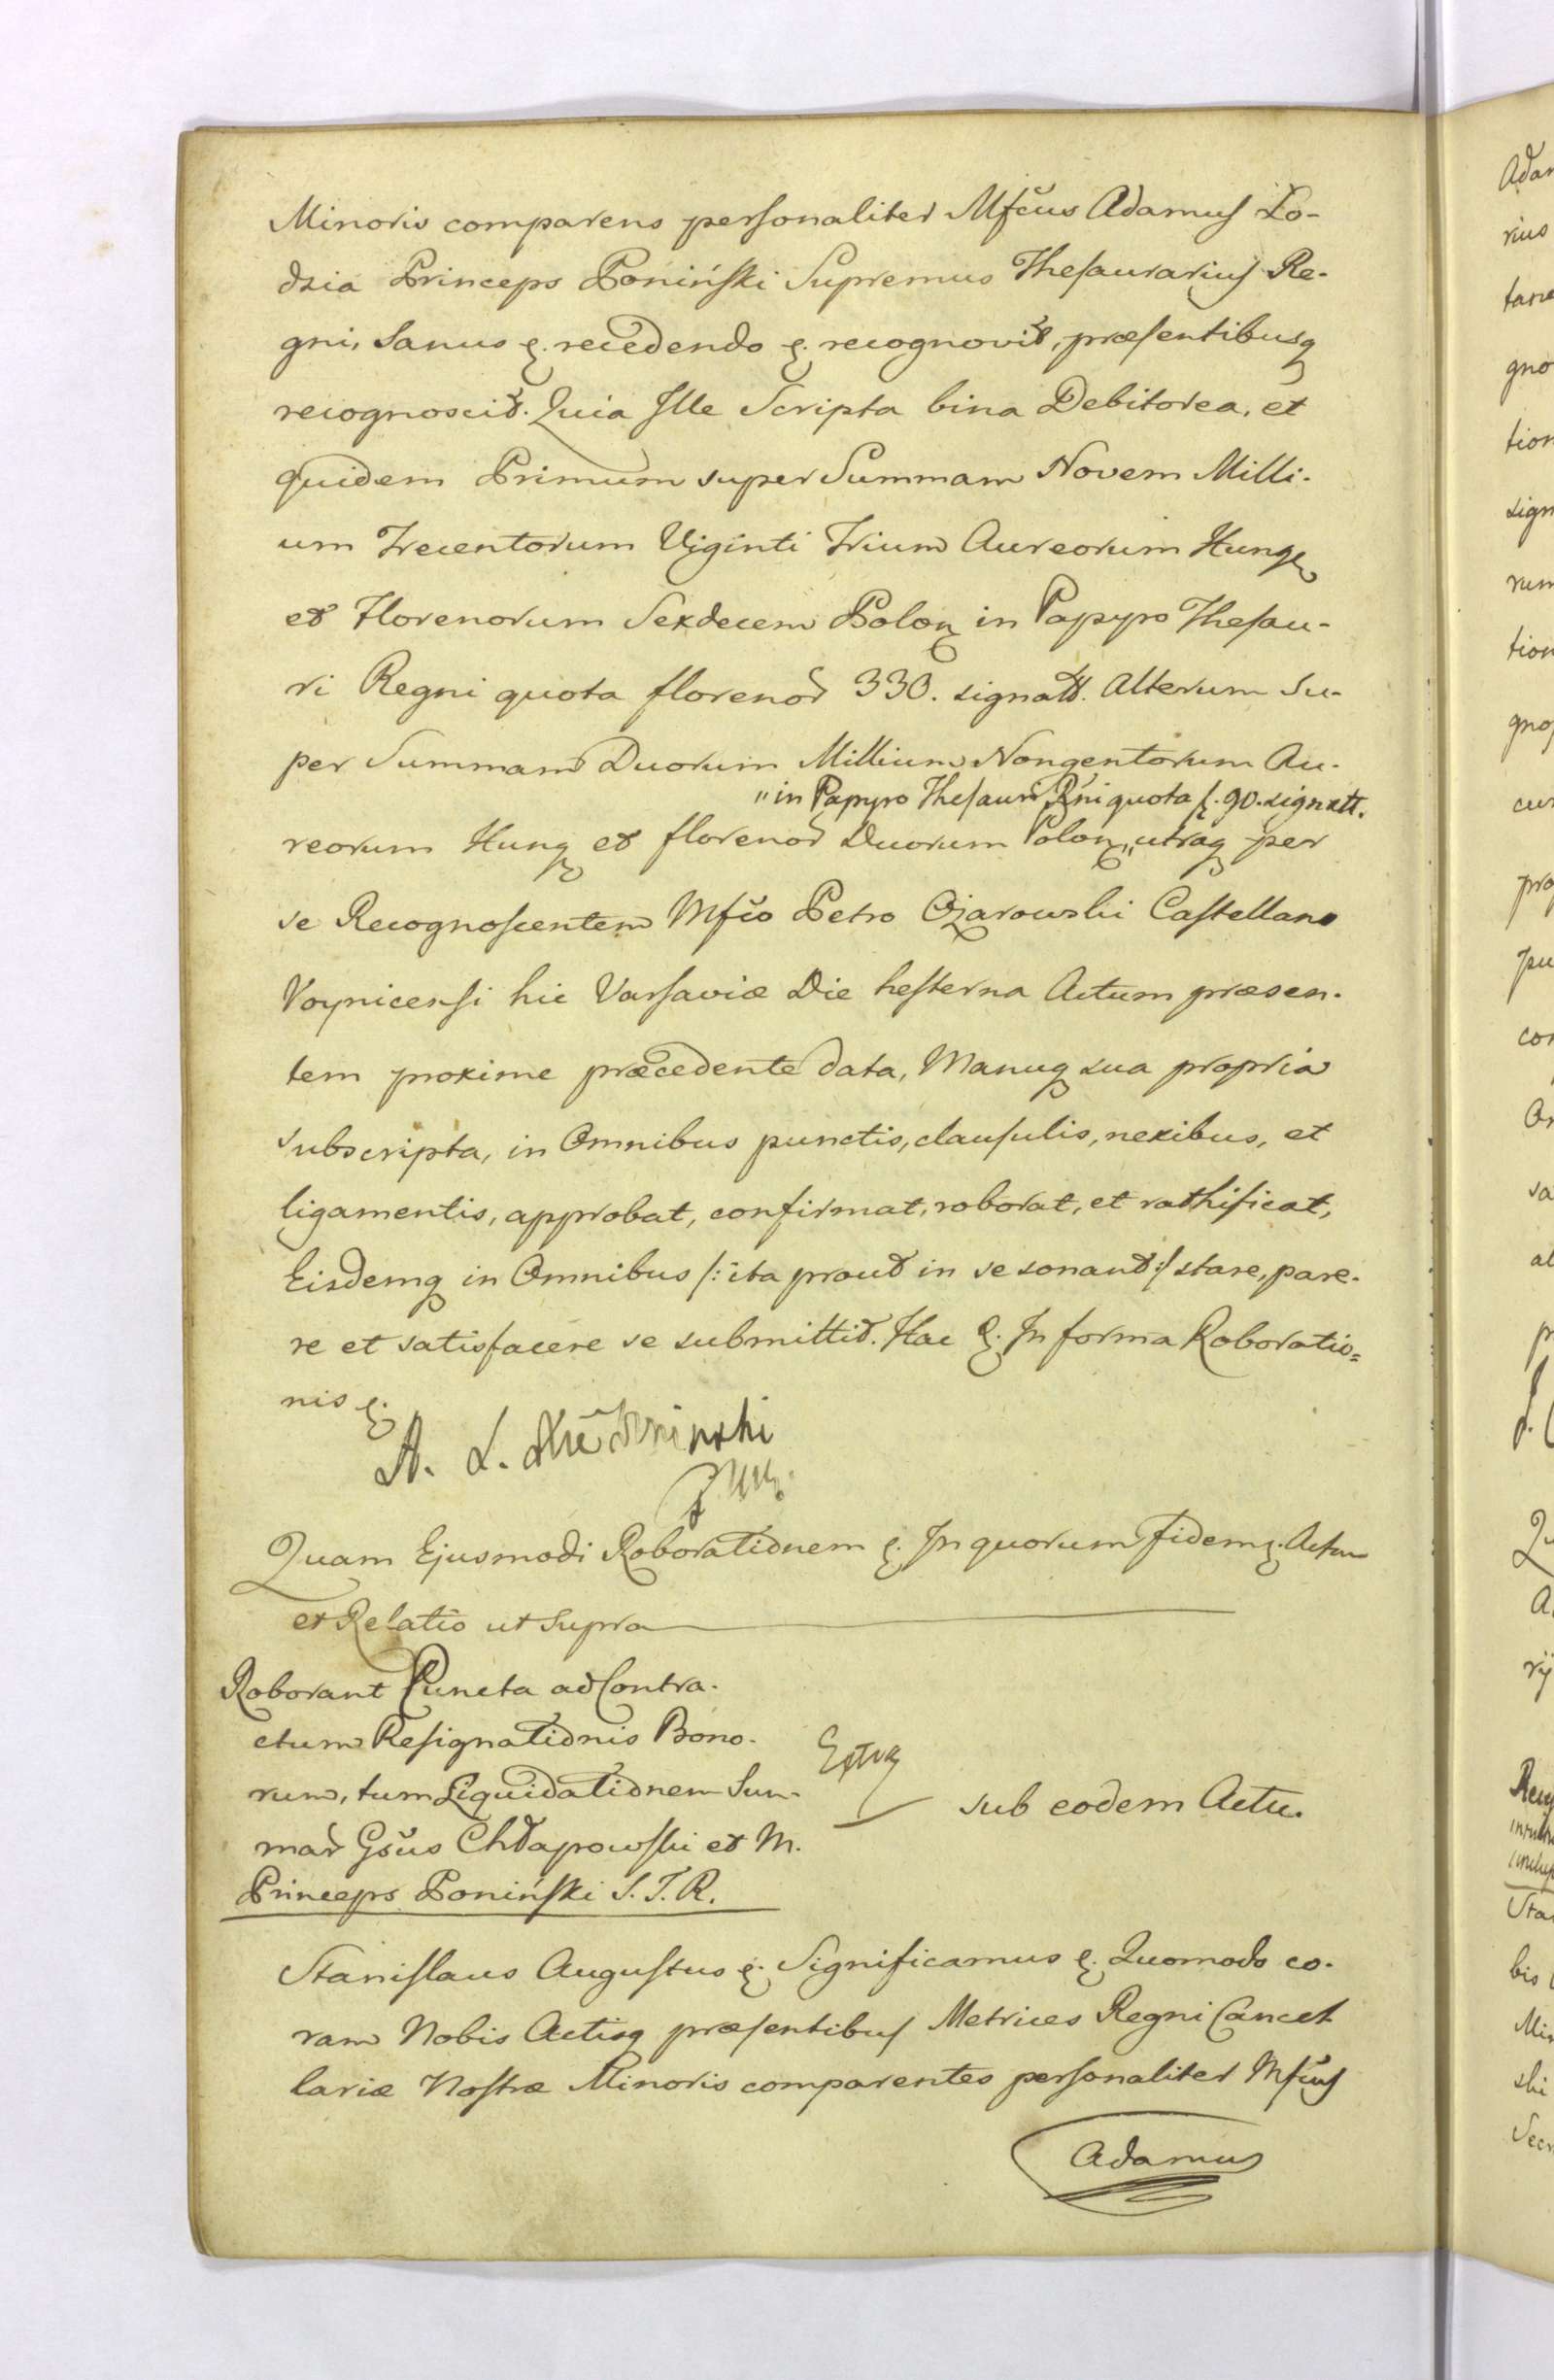 Minoris comparens personaliter Mfcus Adamus Lo-
dzia Princeps Poniński Supremus Thesaurarius Re-
gni, Sanus etc. recedendo etc. recognovit, præsentibusq
recognoscit. Quia Ille Scripta bina Debitorea, et
quidem Primum super Summam Novem Milli-
um Trecentorum Viginti Trium Aureorum Hung
et Florenorum Sexdecem Polon in Papyro Thesau-
ri Regni quota florenor 330. signatt. Alterum Su-
per Summam Duorum Millium Nongentorum Au-
"in Papyro Thesauri Rni quota f. 90. signatt.
reorum Hung et florenor Duorum Polon "utraq per
se Recognoscentem Mfco Petro Ożarowski Castellano
Voynicensi hic Varsaviæ Die hesterna Actum præsen-
tem proxime præcedente data, Manuq sua propria
subscripta, in Omnibus punctis, clausulis, nexibus, et
ligamentis, approbat, confirmat, roborat, et rathificat,
Eisdemq in Omnibus /: ita prout in se sonant :/ stare, pare-
re et satisfacere se submittit. Hac etc. In forma Roboratio=
nis etc.
A. L.
Quam Ejusmodi Roborationem etc. In quorum fidem etc. Actum
et Relatio ut supra
Roborant Puncta ad Contra-
ctum Resignationis Bono-
rum, tum Liquidationem Sum-
mar Gsus Chłapowski et M.
Princeps Poniński S. T. R.
Extra
sub eodem Actu.
Stanislaus Augustus etc. Significamus etc. Quomodo co-
ram Nobis Actisq præsentibus Metrices Regni Cancel
lariæ Nostræ Minoris comparentes personaliter Mfcus
Adamus